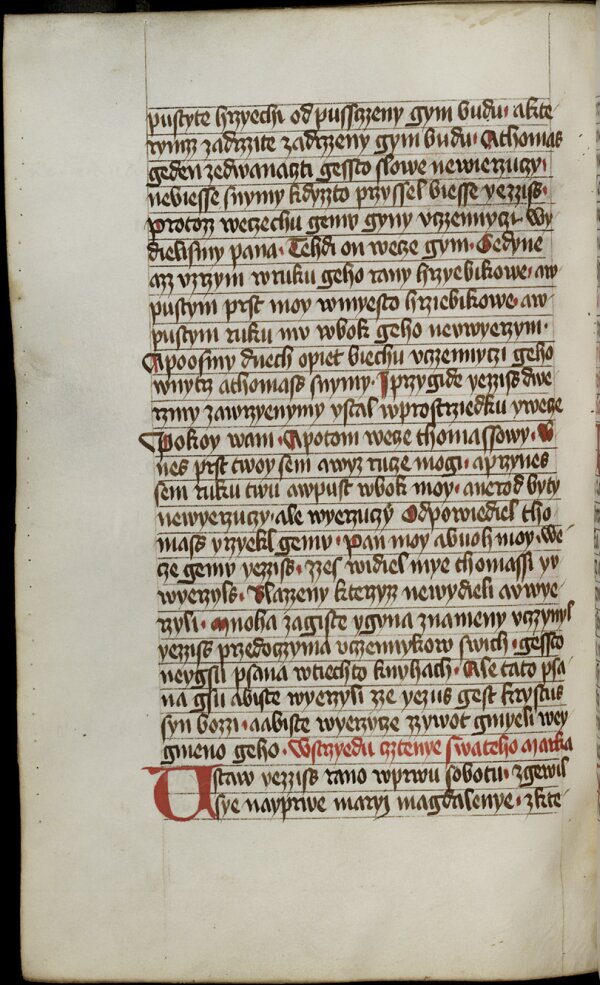 pustyte hrzyechi od pussczeny gym budu· akte
rymz zadrzite zadrzeny gym budu· Athomas
geden zedwanaczti gessto slowe newierzuczy·
nebiesse snymy kdyzto przyssel biesse yezziss·
protoz weczechu gemv gyny vczennyczi· Wy
dielismy pana· Tehdi on wecze gym· Gedyne
azz vzrzym wruku geho rany hrzyebikowe· aw
pustym prst moy wmyesto hrziebikowe· aw
pustym ruku mv wbok geho nevwyerzym·
Apoosmy dnech opiet biechu vczennyczi geho
wnytrz athomass snymy· Iprzygide yezziss dwe
rzmy zawrzyenymy vstal wprostrziedku ywecze
Pokoy wam· Apotom wecze thomassowy· W
nes prst twoy sem awyz rucze mogi· aprzynes
sem ruku twu awpust wbok moy· anerod byty
newyerzuczy· ale wyerzuczy Odpowiediel tho
mass yrzyekl gemv· Pan moy abuoh moy· We
cze gemy yezziss· zzes widiel mye thomassi yv
wyerzyls· Blazzeny kterzyz newydieli avwye
rzyli· Mnoha zagiste ygyna znameny vczynyl
yezziss przedoczyma vczennykow swich· gessto
neygsu psana wtiechto knyhach· Ale tato psa
na gsu abiste wyerzyli zze yezus gest krystus
syn bozzi· aabiste wyerzycze zzywot gmyeli wey
gmeno geho· Wstrzyedu cztenye swateho Marka
Ustaw yezziss rano wprwu sobotu· zgewil
sye nayprwe maryi magdalenye· zkte